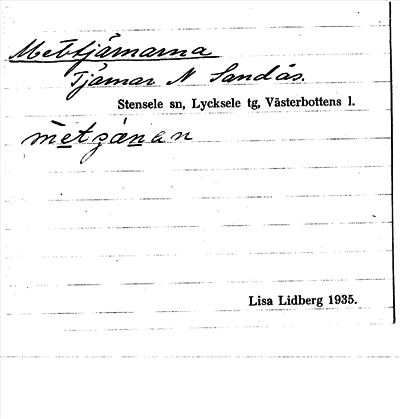 Mettjärnarna
Tjärnar N Sandås.
Stensele sn, Lycksele tg, Västerbottens l.
Lisa Lidberg 1935.